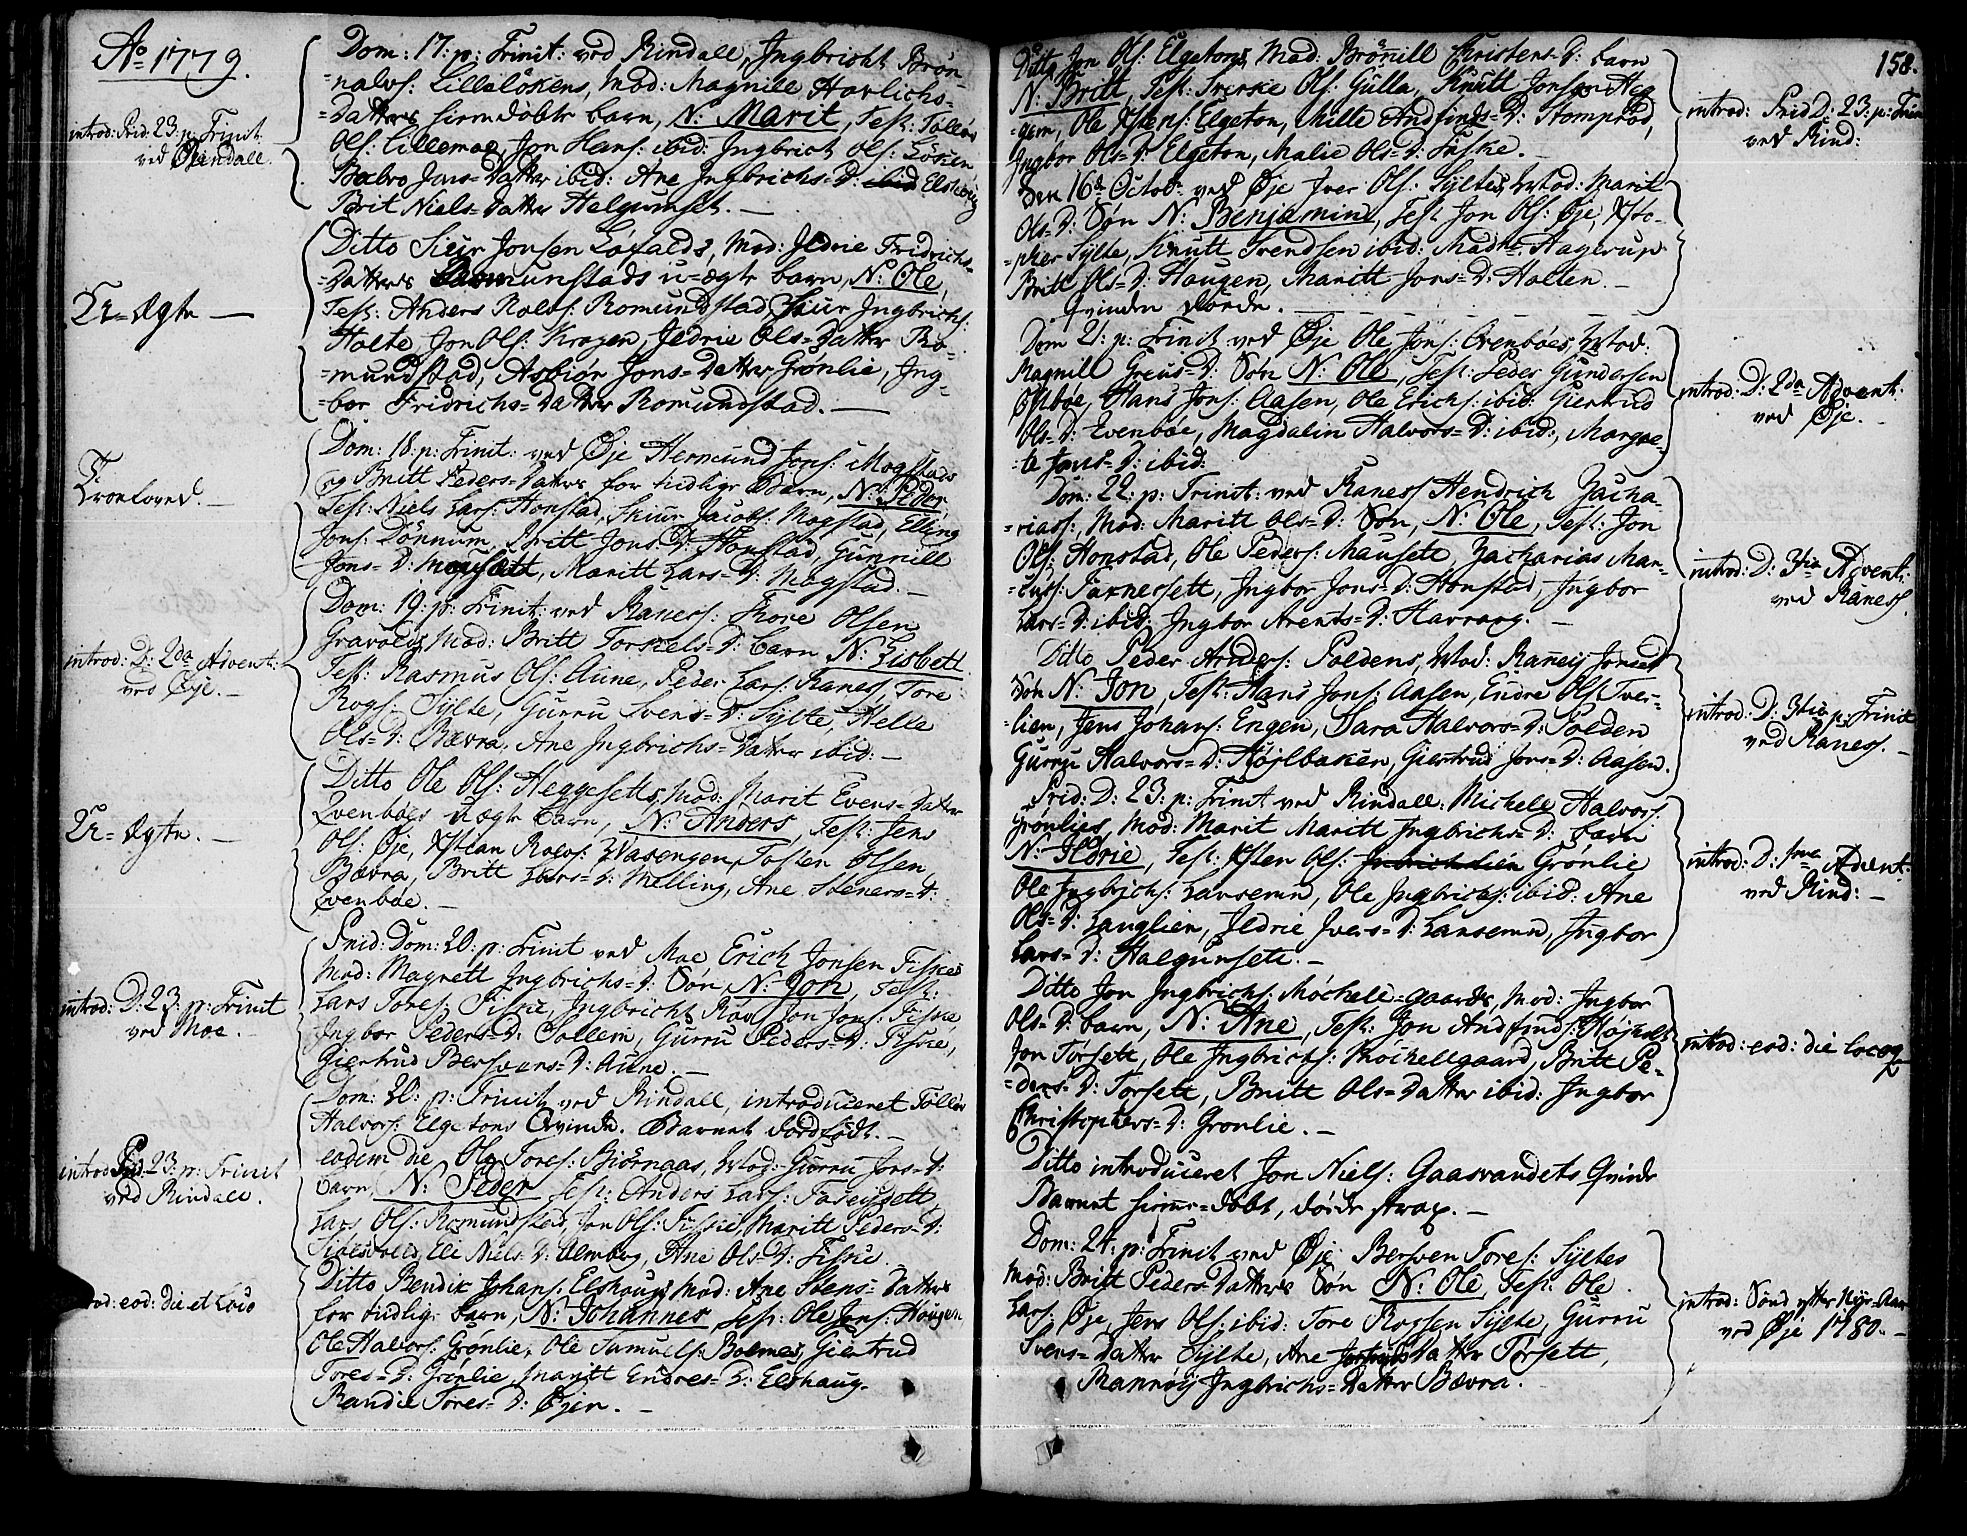 Ao 1779.
Dom: 17: p: Trinit: ved Rindall, Ingbricht Brön-
=nalvs: Lilleløkens, Mod: Magnille Havlichs-
=Datters hiemdøbte barn, N: Marit, Test: Tøllev
Ols: Lillemoe, Jon Hans: ibid: Ingbricht Ols: Løken
Baebro Jons=Datter ibid: Ane Ingbrichs=D: Elshoug
Törit Niels=Datter Helgumset. —
introd: Frid: 23: p: Trinit
ved Rindall.
Ditto Siur Jonsen Løfalds, Mod: Jldrie Fridrichs=
=Datters Romunstads u=ægte barn, N: Ole
Test: Anders Rolvs: Romundstad, Siur Ingbrichs:
Holte, Jon Ols: Krogen, Jldrie Ols=Datter Ro=
=mundstad, Asbiør Jons=Datter Grönlie, Ing=
=bor Fridrichs=Datter Romundstad. —
U=ægte —
Dom: 18: p: Trinit: ved Øje Hermund Jons: Mogstads
og Britt Peders=Datters for tidlige Barn, N: Peder,
Test: Niels Lars: Honstad, Skiur Jacobs: Mogstad, Elling
Jons: Dönnum, Britt Jons=D: Honstad, Gunnill
Jons=D: Mousætt, Maritt Lars=D: Mogstad. —
Troeloved. —
Dom: 19: p: Trinit: ved Raness: Thore Olsen
Gravolds, Mod: Britt Torkels=D: barn N: Lisbett
Test: Rasmus Ols: Aune, Peder Lars: Raness, Tore
Rogs: Sylte, Gurru Svens=D: Sylte, Helle
Ols=D: Bævra, Ane Ingbrichs=Datter ibid: —
introd: D: 2da Advent:
ved Øje. —
Ditto Ole Ols: Heggesetts, Mod: Marit Evens=Datter
Qvenboes uægte barn, N: Anders, Test: Jens
Ols: Øje, Rolvs: Wasengen, Tosten Olsen
Bævra, Britt Lars=D: Melling, Ane Steners=D:
Qvenböe. —
U=ægte. —
Frid: Dom: 20: p: Trinit ved Moe Erich Jonsen Fiskes
Mod: Magnett Ingbrichs=D: Søn, N: Jon, Test:
Lars Tores: Fiske, Ingbricht Röv, Jon Jons: Fiske,
Ingbor Peders=D: Sollem, Gurru Peders=D: Fiske,
Giertrud Bersvens=D: Aune. —
introd: D: 23: p: Trinit
ved Moe. —
Dom: 20: p: Trinit ved Rindall, introduceret Tøllev
Halvors: Elgetons Qvinde. Barnet dødfødt. —
eodem die Ole Tores: Biörnaas, Mod: Gurru Jons=D:
barn, N: Peder Test: Anders Lars:
Lars Ols: Romundstad, Jon Ols: Fiske, Maritt Peders=D:
Eli Niels=D: Almberg, Ane Ols=D: Fiske.
introd: 23: p: Trinit
ved Rindall.
Ditto Bendix Johans: Elshougs, Mod: Ane Stens=Datters
for tidlige barn, N: Johannes, Test: Ole Jons: Hougen
Ole Halvors: Grönlie, Ole Samuels: Bolmes, Giertrud
Tores=D: Grönlie, Maritt Endres=D: Elshaug.
Randie Tores=D: Øjen. —
eod: die et loco
158.
Ditto Jon Ols: Elgetons, Mod: Brönill Christens=D: barn
N: Britt, Test: Sverke Ols: Gulla, Knutt Jonsen Heg
=gem, Ole Elgeton, Mille Andfinds=D: Stomprød,
Ingbor Ols=D: Elgeton, Malie Ols=D: Fiske. —
introd: Frid D: 23: p: Trin
ved Rind:
Den 16de Octob: ved Øje Iver Ols: Syltes, Mod: Marit
Ols=D: Søn N: Benjamin, Test: Jon Ols: Øje, Xsto-
=pher Sylte, Knutt Trendsen ibid: Madme Hagerup
Britt Ols=D: Haugen, Maritt Jons=D: Holten. —
Qvinden døde. —
Dom 21: p: Trinit ved Øje Ole Jons: Evenböes, Mod:
Magnill Greus=D: Søn N: Ole, Test: Peder Gundersen
Hans Jons: Aasen, Ole Erichs: ibid: Giertrud
Ols=D: Evenböe, Magdalin Halvors=D: ibid:, Margre=
=te Jons=D: ibid:
introd: D: 2da Advent:
ved Øje.
Dom: 22: p: Trinit: ved Raness Hendrich Zacha-
=riass:, Mod: Maritt Ols=D: Søn, N: Ole, Test: Jon
Ols: Honstad, Ole Peders: Mausett, Zacharias Mar-
Ingbor Jons=D: Honstad, Ingbor
Lars=D: ibid: Ingbor Arents=D: Havrang. —
introd: D: 3tia Advent:
ved Raness.
Ditto Peder Anders: Poldens, Mod: Ranneij Jonsd
Søn N: Jon, Test: Hans Jons: Aasen, Endre Ols: Tve-
=lien, Jens Johans: Engen, Sara Halvors=D: Polden
Gurru Halvors=D: Höjlbakken, Giertrud Jons=D: Aasen.
introd: D: 3tia p: Trinit
ved Raness. —
Frid: D: 23: p: Trinit ved Rindall: Michell Halvors:
Grønlies, Mod: Marit Maritt Ingbrichs=D: barn
N: Jldrie, Test: Ols: Grönlie
Ole Ingbrichs: Lansemn, Ole Ingbrichs: ibid: Ane
Ols=D: Langlien, Jldrie Ivers=D: Lansemn, Ingbor
Lars=D: Halgumsett. —
introd: D: 1ma Advent:
ved Rind: —
Ditto Jon Ingbrichs: Möchele=gaards, Mod: Ingbor
Ols=D: barn, N: Ane, Test: Jon Andfinds:
Jon Törsett, Ole Ingbrichs: Möchellgaard, Britt Pe-
=ders=D: Torsett, Britt Ols=Datter ibid: Ingbor
Christophers=D: Grönlie. —
introd: eod: die loco
Ditto introduceret Jon Niels: Gaasvandets Qvinde
Barnet hieme=døbt, døde strax. —
Dom: 24: p: Trinit ved Øje Bersven Tores: Syltes
Mod: Britt Peders=Datters Søn N: Ole, Test: Ole
Lars: Øje, Jens Ols: ibid: Tore Rogssen Sylte, Gurru
Svens=Datter Sylte, Ane Datter Törsett,
Rannöij Ingbrichs=Datter Bævra.
introd: Sönd: efter Nye=Aar
ved Øje 1780. —